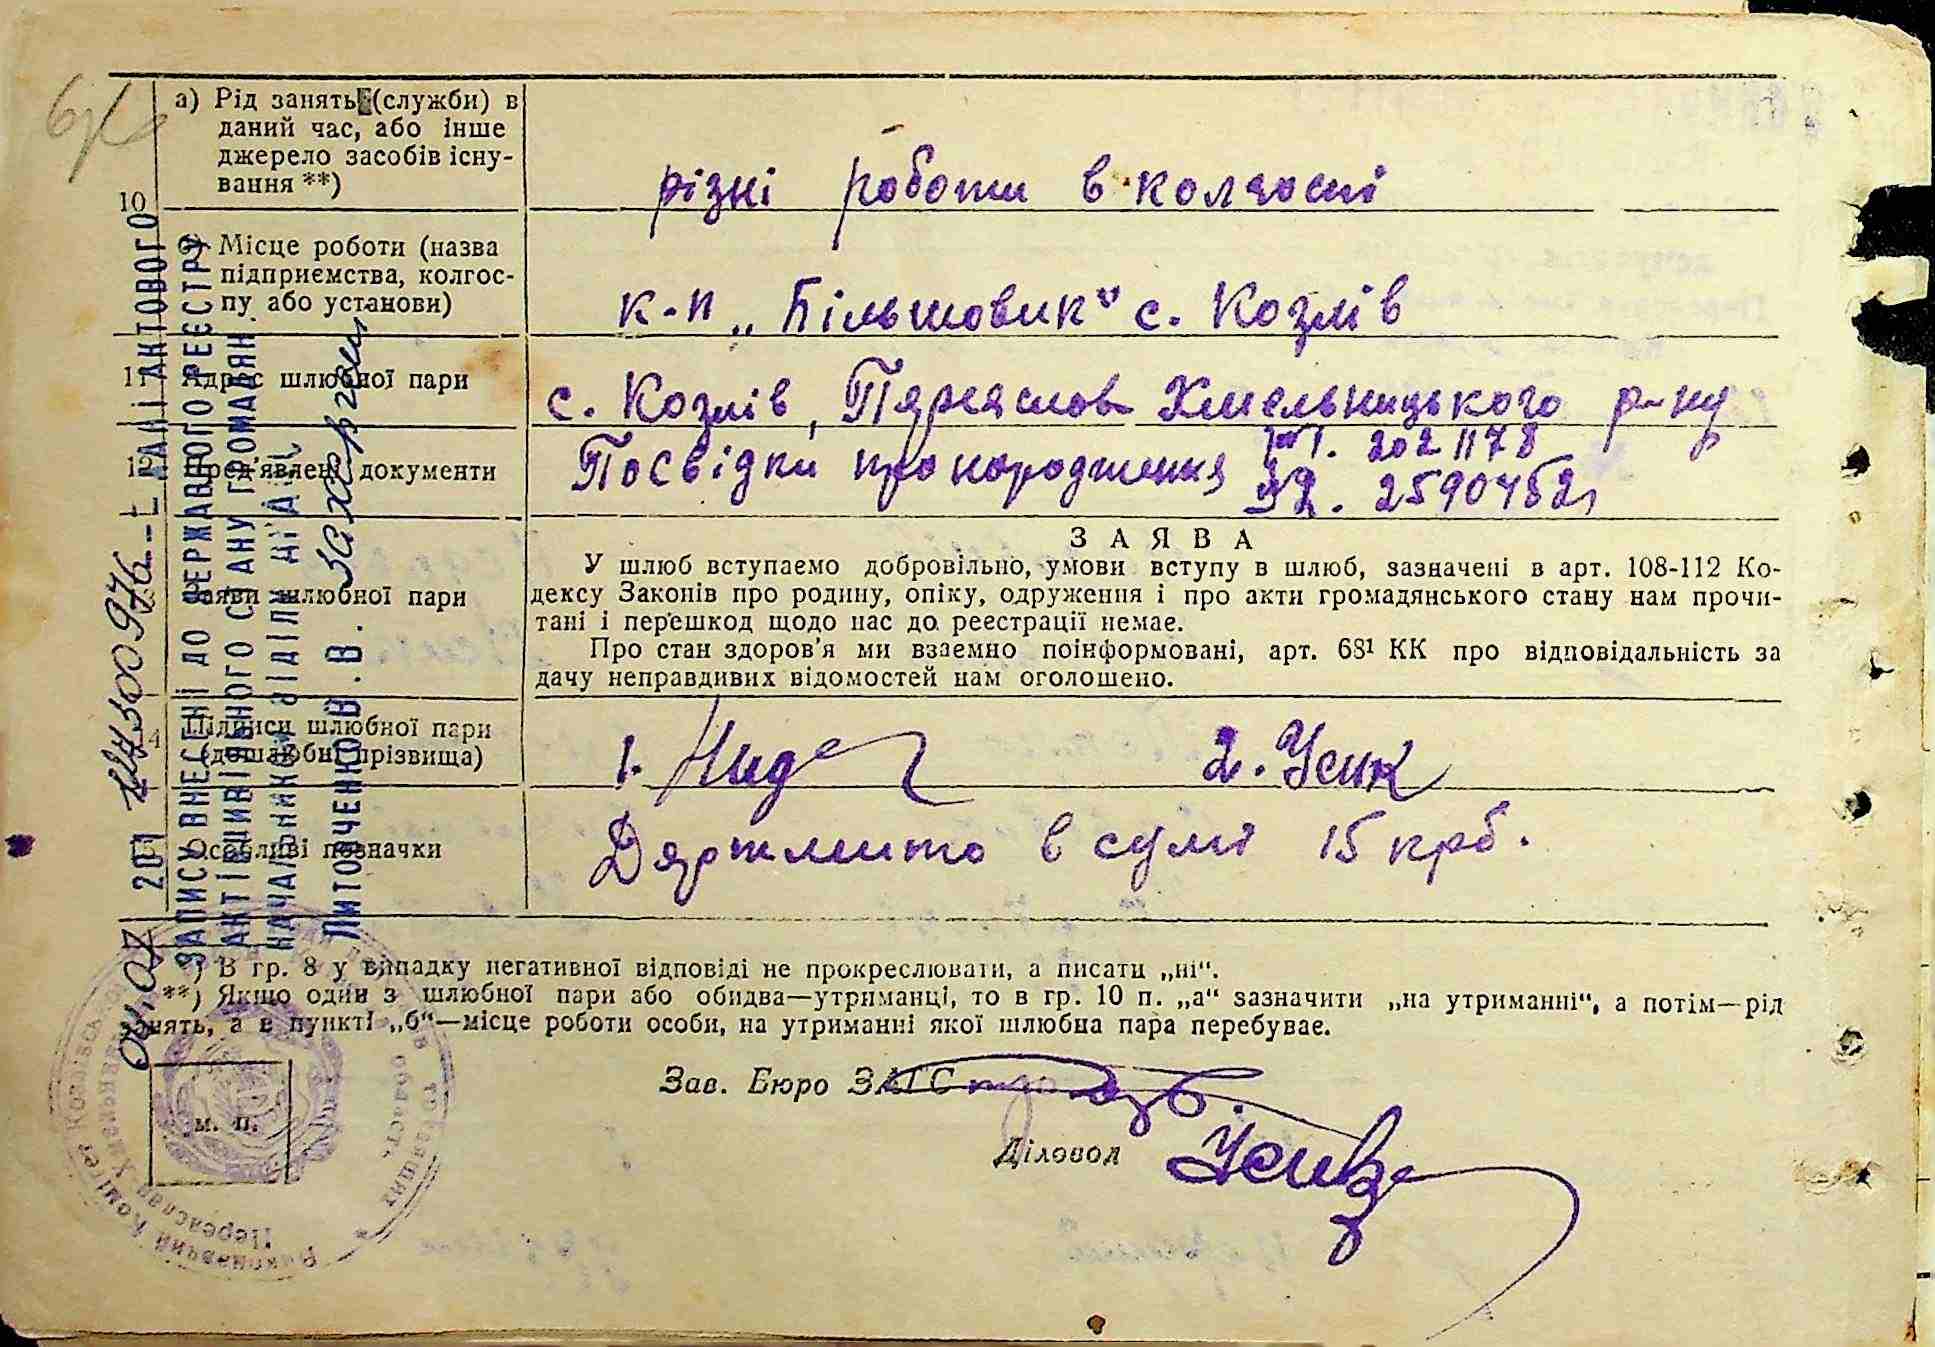 а) Рід занять (служби) в
даний час, або інше
джерело засобів існу-
вання **)
10
різні роботи в колгоспі
Місце роботи (назва
підприємства, колгос-
пу або установи)
к-п „Більшовик" с. Козлів
11 Адрес шлюбної пари
с. Козлів, Переяслов Хмельницького р-ну
12 Пред'явлені документи
Посвідки про народження
202 1178
2590452
ЗАЯВА
Заяви шлюбної пари
У шлюб вступаємо добровільно, умови вступу в шлюб, зазначені в арт. 108-112 Ко-
дексу Законів про родину, опіку, одруження і про акти громадянського стану нам прочи-
тані і перешкод щодо нас до реєстрації немає.
Про стан здоров'я ми взаємно поінформовані, арт. 68¹ КК про відповідальність за
дачу неправдивих відомостей нам оголошено.
14 Підписи шлюбної пари
(дошлюбні прізвища)
1. 2. Усик
Особливі позначки
Держмито в сумі 15 крб.
*) В гр. 8 у випадку негативної відповіді не прокреслювати, а писати „ні“.
**) Якщо один з шлюбної пари або обидва—утриманці, то в гр. 10 п. „а“ зазначити „на утриманні“, а потім—рід
занять, а в пункті „б“—місце роботи особи, на утриманні якої шлюбна пара перебуває.
м. п.
Зав. Бюро ЗАГС
Діловод
201
ЗАПИСЬ ВНЕСЕНІ ДО ДЕРЖАВНОГО РЕЄСТРУ
АКТІВ ЦИВІЛЬНОГО СТАНУ ГРОМАДЯН
НАЧАЛЬНИК ВІДДІЛУ
Литовченко В.В.
Виконавчий Комітет Козлівської
Переяслав Хмельниц
область